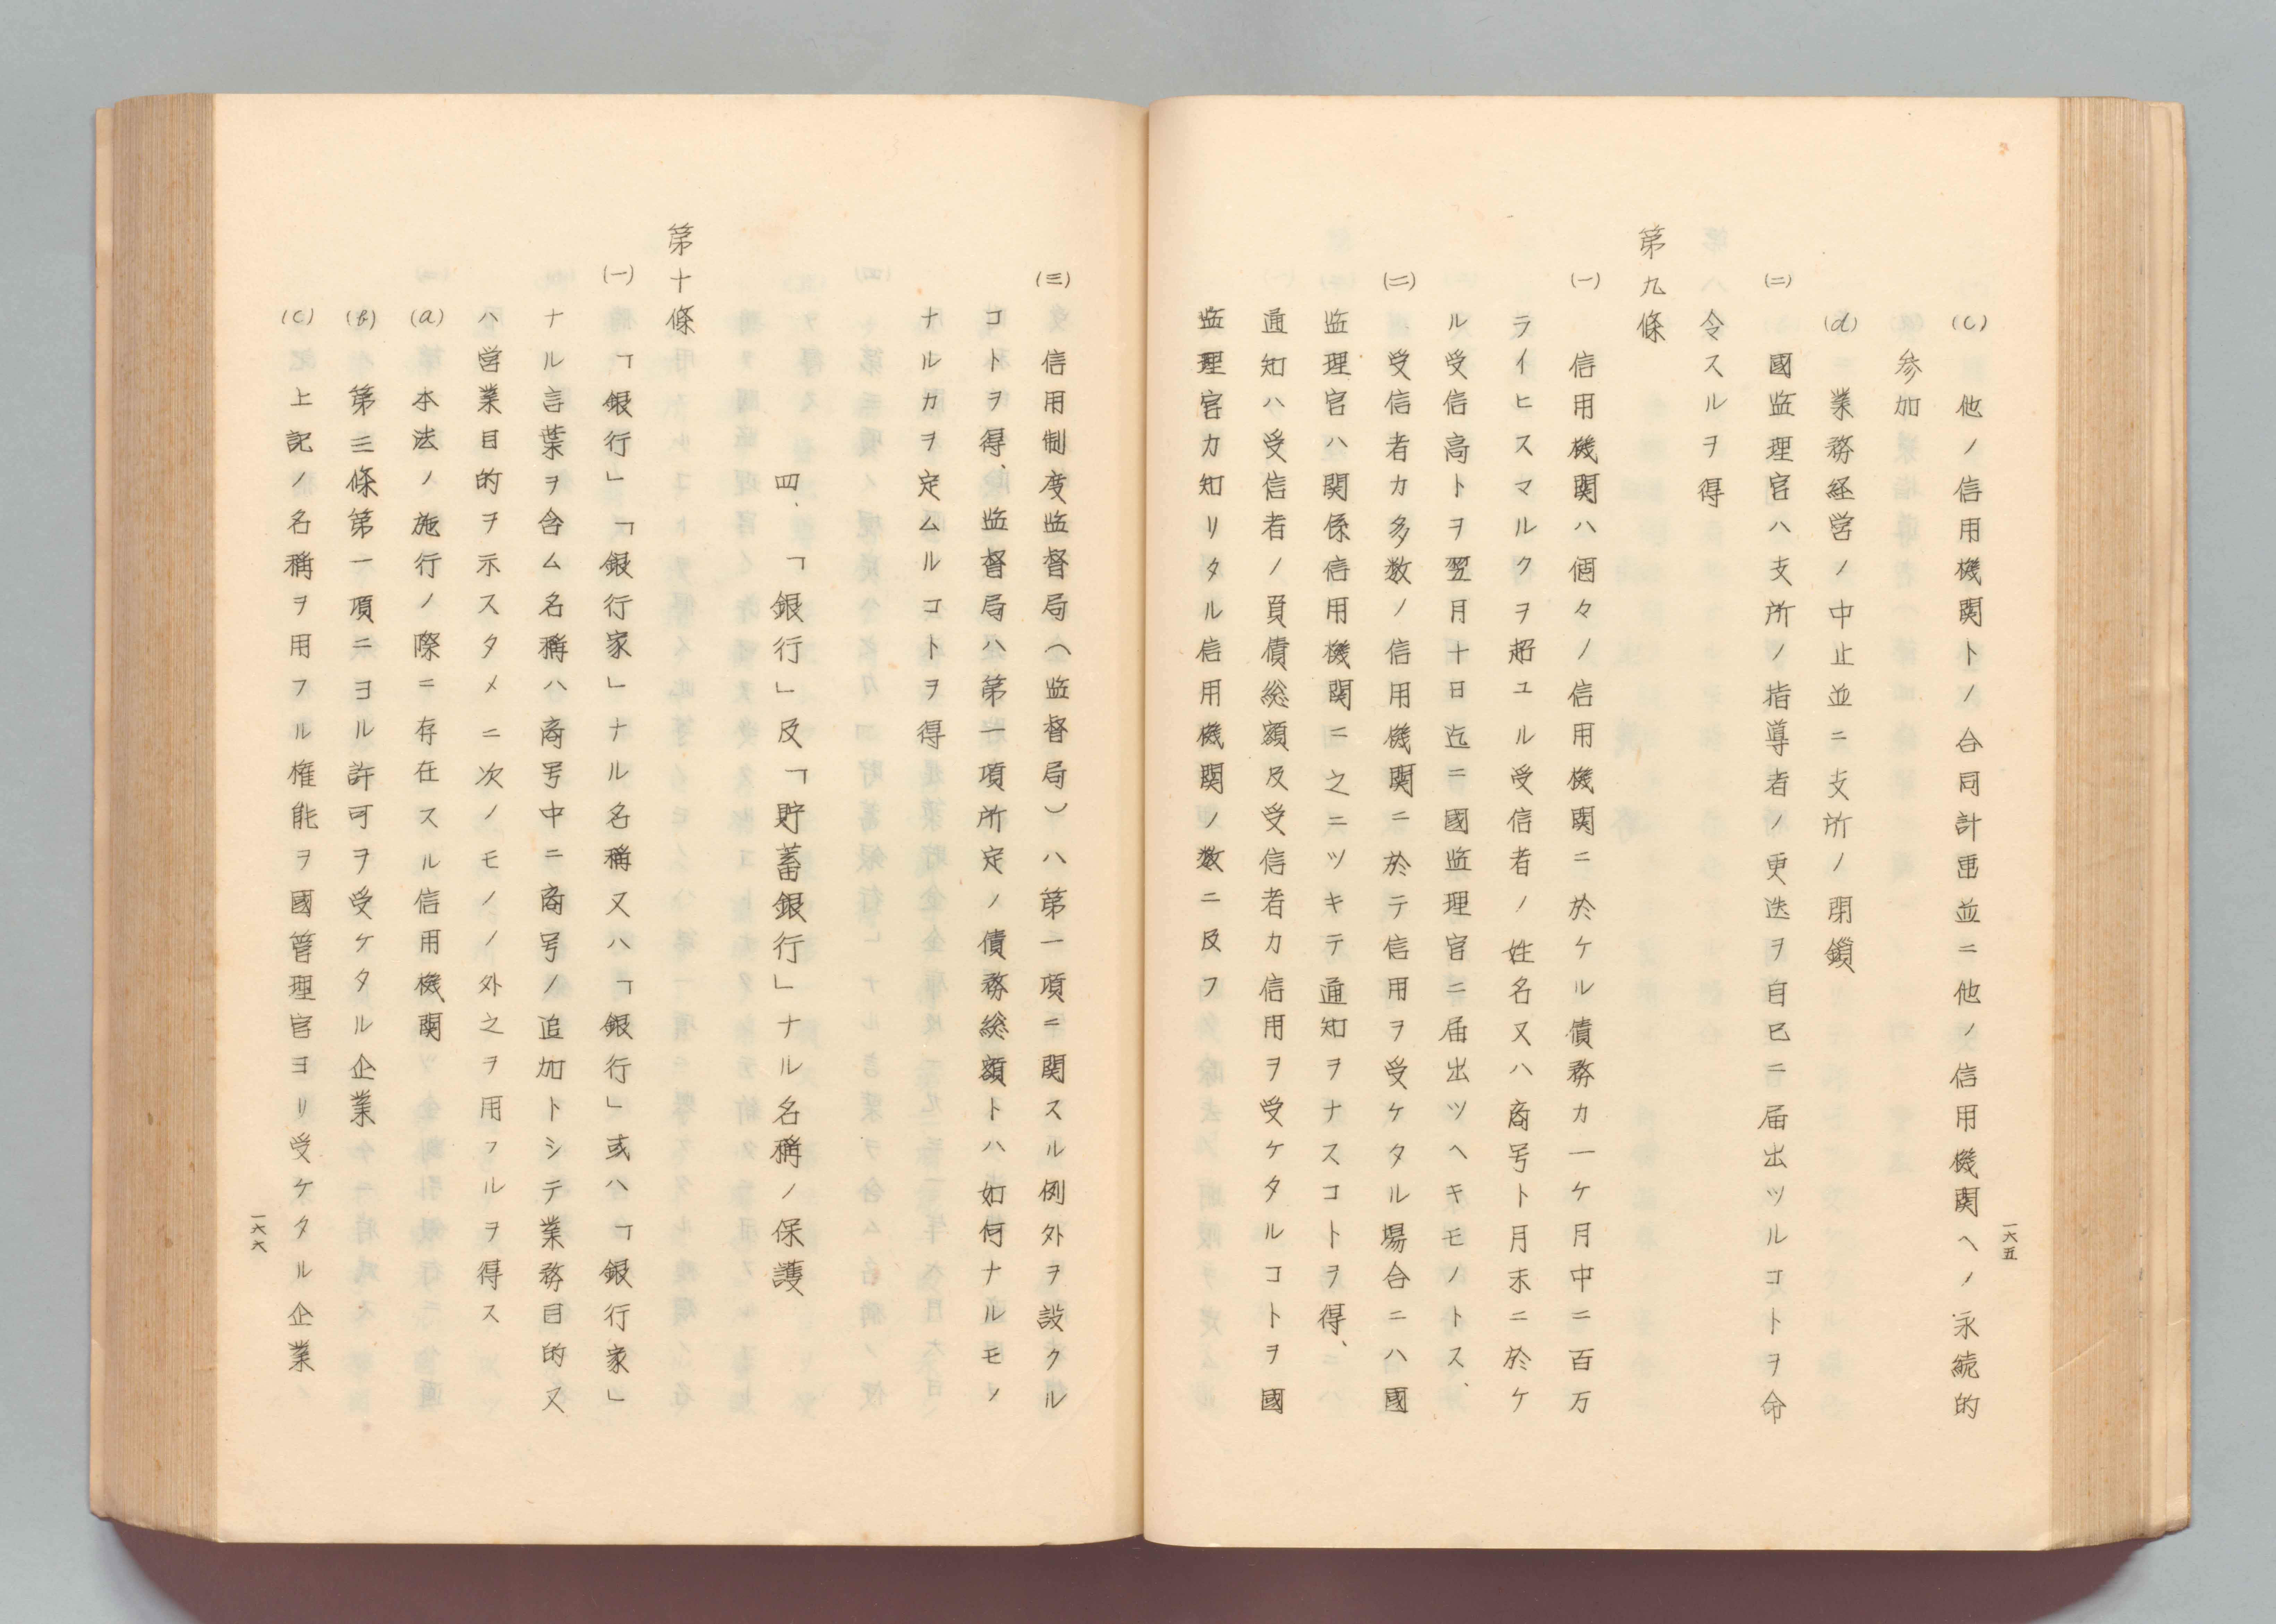 (c) 他ノ信用機関トノ合同計畫並ニ他ノ信用機関ヘノ永続的
参加
(d) 業務経営ノ中止並ニ支所ノ閉鎖
(二) 國監理官ハ支所ノ指導者ノ更迭ヲ自己ニ届出ツルコトヲ命
令スルヲ得
第九條
(一) 信用機関ハ個々ノ信用機関ニ於ケル債務カ一ケ月中ニ百万
ライヒスマルクヲ超ユル受信者ノ姓名又ハ商号ト月末ニ於ケ
ル受信高トヲ翌月十日迄ニ國監理官ニ届出ツヘキモノトス、
(二) 受信者カ多数ノ信用機関ニ於テ信用ヲ受ケタル場合ニハ國
監理官ハ関係信用機関ニ之ニツキテ通知ヲナスコトヲ得、
通知ハ受信者ノ負債総額及受信者カ信用ヲ受ケタルコトヲ國
監理官カ知リタル信用機関ノ数ニ及フ
一六五
(三) 信用制度監督局(監督局)ハ第一項ニ関スル例外ヲ設クル
コトヲ得、監督局ハ第一項所定ノ債務総額トハ如何ナルモノ
ナルカヲ定ムルコトヲ得
四、「銀行」及「貯蓄銀行」ナル名稱ノ保護
第十條
(一) 「銀行」「銀行家」ナル名稱又ハ「銀行」或ハ「銀行家」
ナル言葉ヲ含ム名稱ハ商号中ニ商号ノ追加トシテ業務目的又
ハ営業目的ヲ示スタメニ次ノモノノ外之ヲ用フルヲ得ス
(a) 本法ノ施行ノ際ニ存在スル信用機関
(b) 第三條第一項ニヨル許可ヲ受ケタル企業
(c) 上記ノ名稱ヲ用フル権能ヲ國管理官ヨリ受ケタル企業
一六六